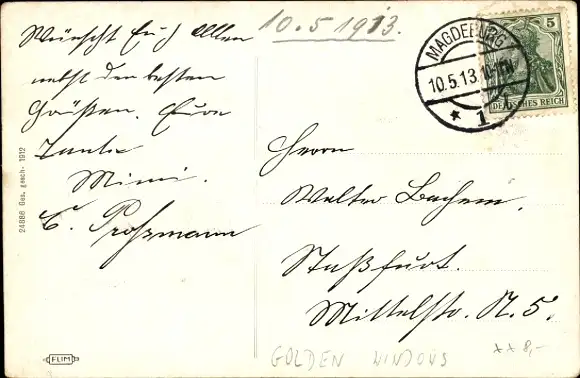 Wünscht Euch Allen
nebst den besten
Grüßen. Eure
Tante
Mimi.
E. Proßmann
10.5.1913.
MAGDEBURG
10.5.13.
* 1
5
DEUTSCHES REICH
Herrn
Walter Bachem.
Staßfurt.
Mittelstr. N. 5.
24888 Ges. gesch. 1912
FLIM
GOLDEN WINDOWS
xx 8,-